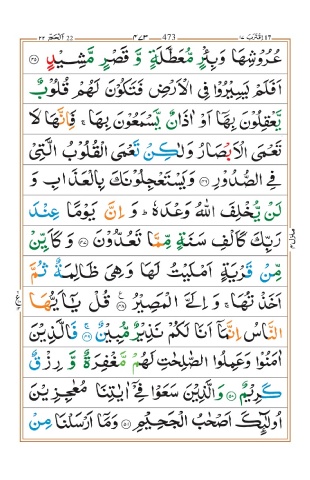 اقترب ١٧ 473 ٤٧٣ الحج 22 ٢٢
عُرُوْشِهَا وَبِئْرٍ مُّعَطَّلَةٍ وَّ قَصْرٍ مَّشِيْدٍ ﴿۴۵﴾
اَفَلَمْ يَسِيْرُوْا فِى الْاَرْضِ فَتَكُوْنَ لَهُمْ قُلُوْبٌ
يَّعْقِلُوْنَ بِهَاۤ اَوْ اٰذَانٌ يَّسْمَعُوْنَ بِهَا ۚ فَاِنَّهَا لَا
تَعْمَى الْاَبْصَارُ وَلٰكِنْ تَعْمَى الْقُلُوْبُ الَّتِىْ
فِى الصُّدُوْرِ ﴿۴۶﴾ وَيَسْتَعْجِلُوْنَكَ بِالْعَذَابِ وَ
لَنْ يُّخْلِفَ اللّٰهُ وَعْدَهٗ ؕ وَ اِنَّ يَوْمًا عِنْدَ
رَبِّكَ كَاَلْفِ سَنَةٍ مِّمَّا تَعُدُّوْنَ ﴿۴۷﴾ وَ كَاَيِّنْ
مِّنْ قَرْيَةٍ اَمْلَيْتُ لَهَا وَهِىَ ظَالِمَةٌ ثُمَّ
اَخَذْتُهَا ۚ وَاِلَىَّ الْمَصِيْرُ ﴿۴۸﴾ قُلْ يٰۤاَيُّهَا
النَّاسُ اِنَّمَاۤ اَنَا لَكُمْ نَذِيْرٌ مُّبِيْنٌ ﴿۴۹﴾ فَالَّذِيْنَ
اٰمَنُوْا وَعَمِلُوا الصّٰلِحٰتِ لَهُمْ مَّغْفِرَةٌ وَّ رِزْقٌ
كَرِيْمٌ ﴿۵۰﴾ وَالَّذِيْنَ سَعَوْا فِىْۤ اٰيٰتِنَا مُعٰجِزِيْنَ
اُولٰٓئِكَ اَصْحٰبُ الْجَحِيْمِ ﴿۵۱﴾ وَمَاۤ اَرْسَلْنَا مِنْ